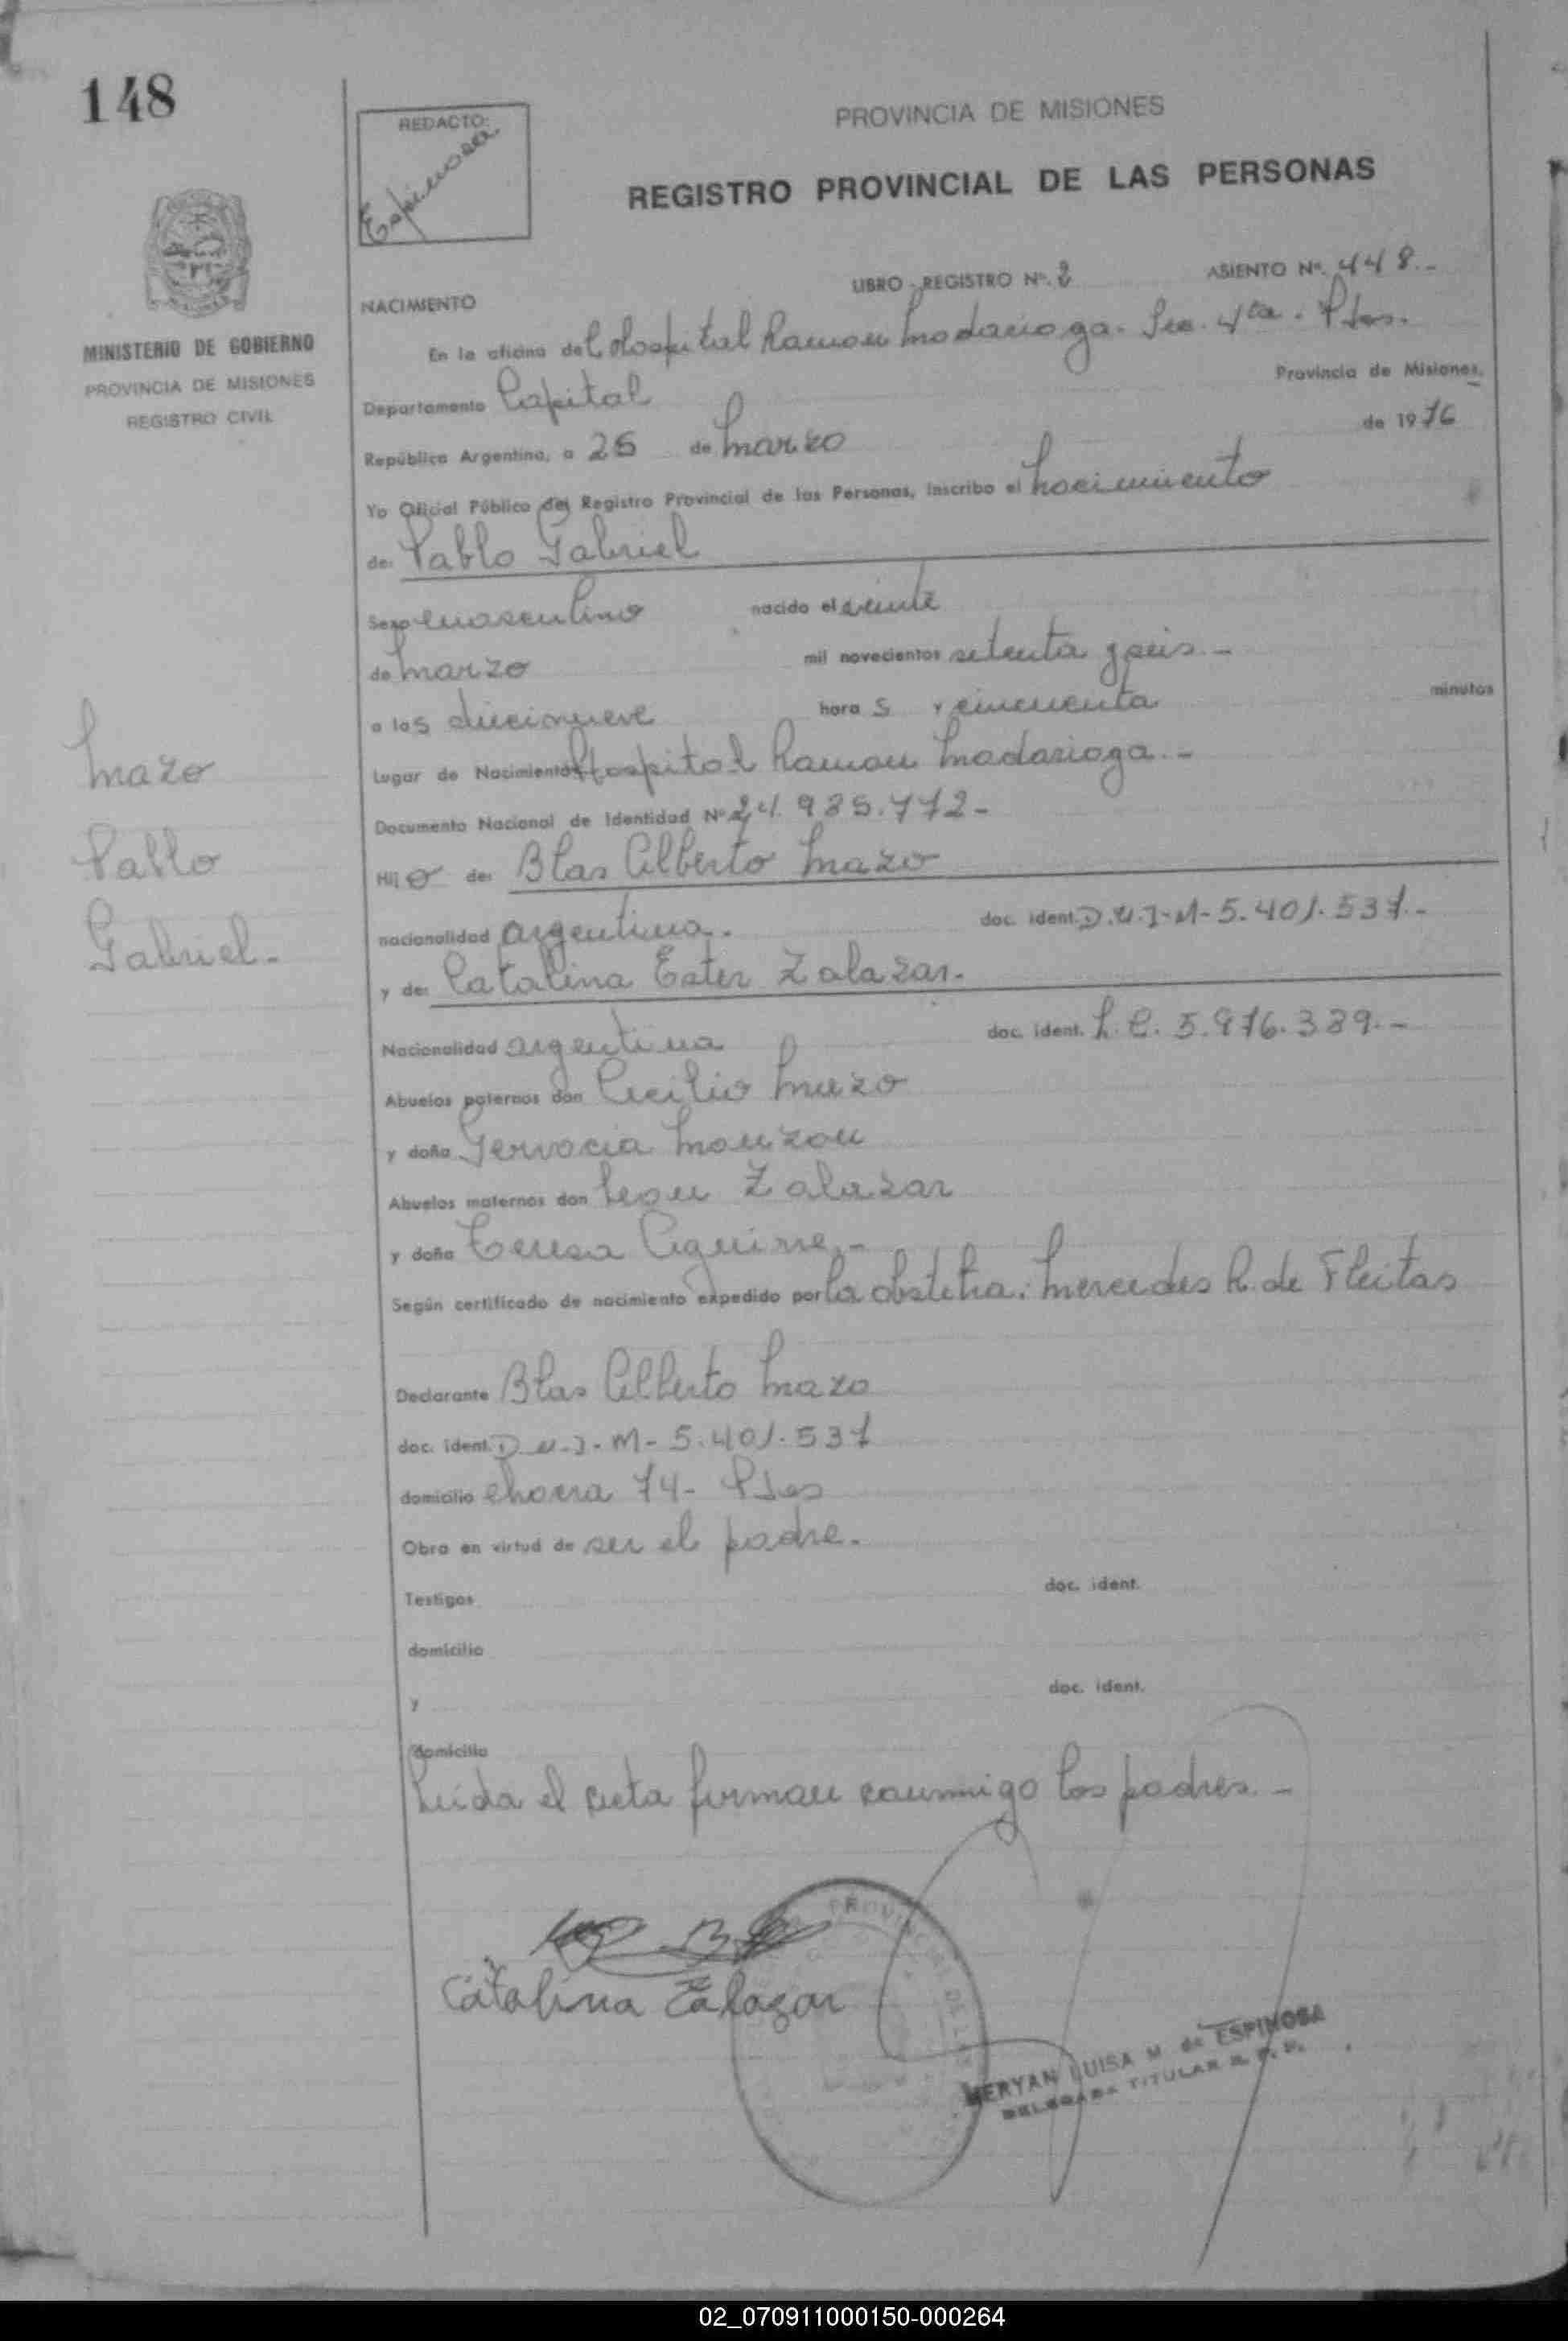 148
REDACTO:
Espinosa
PROVINCIA DE MISIONES
REGISTRO PROVINCIAL DE LAS PERSONAS
MINISTERIO DE GOBIERNO
PROVINCIA DE MISIONES
REGISTRO CIVIL
LIBRO - REGISTRO Nº. 2 ASIENTO Nº. 448.-
NACIMIENTO
En la oficina del Hospital Ramon Madariaga. Sec. 4ta. Pdas.
Departamento Capital Provincia de Misiones,
República Argentina, a 26 de Marzo de 1976
Yo Oficial Público del Registro Provincial de las Personas, inscribo el nacimiento
de: Pablo Gabriel
Sexo masculino nacido el veinte
de Marzo mil novecientos setenta y seis.-
a las diecinueve hora s y cincuenta minutos
Lugar de Nacimiento Hospital Ramon Madariaga.-
Documento Nacional de Identidad Nº 24.985.772-
Hijo de: Blas Alberto Mazo
nacionalidad argentina. doc. ident. D.N.I-M-5.401.537.-
y de: Catalina Ester Zalazar.
Nacionalidad argentina doc. ident. L.C. 5.876.389.-
Abuelos paternos don Cecilio Mazo
y doña Gervacia Monzon
Abuelos maternos don Leon Zalazar
y doña Teresa Aguirre.-
Según certificado de nacimiento expedido por la obstetra: Mercedes R. de Fleitas
Declarante Blas Alberto Mazo
doc. ident. D.N.I-M-5.401.537
domicilio chacra 74- Pdas
Obra en virtud de ser el padre.
Testigos doc. ident.
domicilio
y doc. ident.
domicilio
Leida el acta firman conmigo los padres.-
Mazo
Pablo
Gabriel.-
Catalina Zalazar
PROVINCIAL DE LAS
MERYAN LUISA M de ESPINOSA
DELEGADA TITULAR R. P. P.
02_070911000150-000264